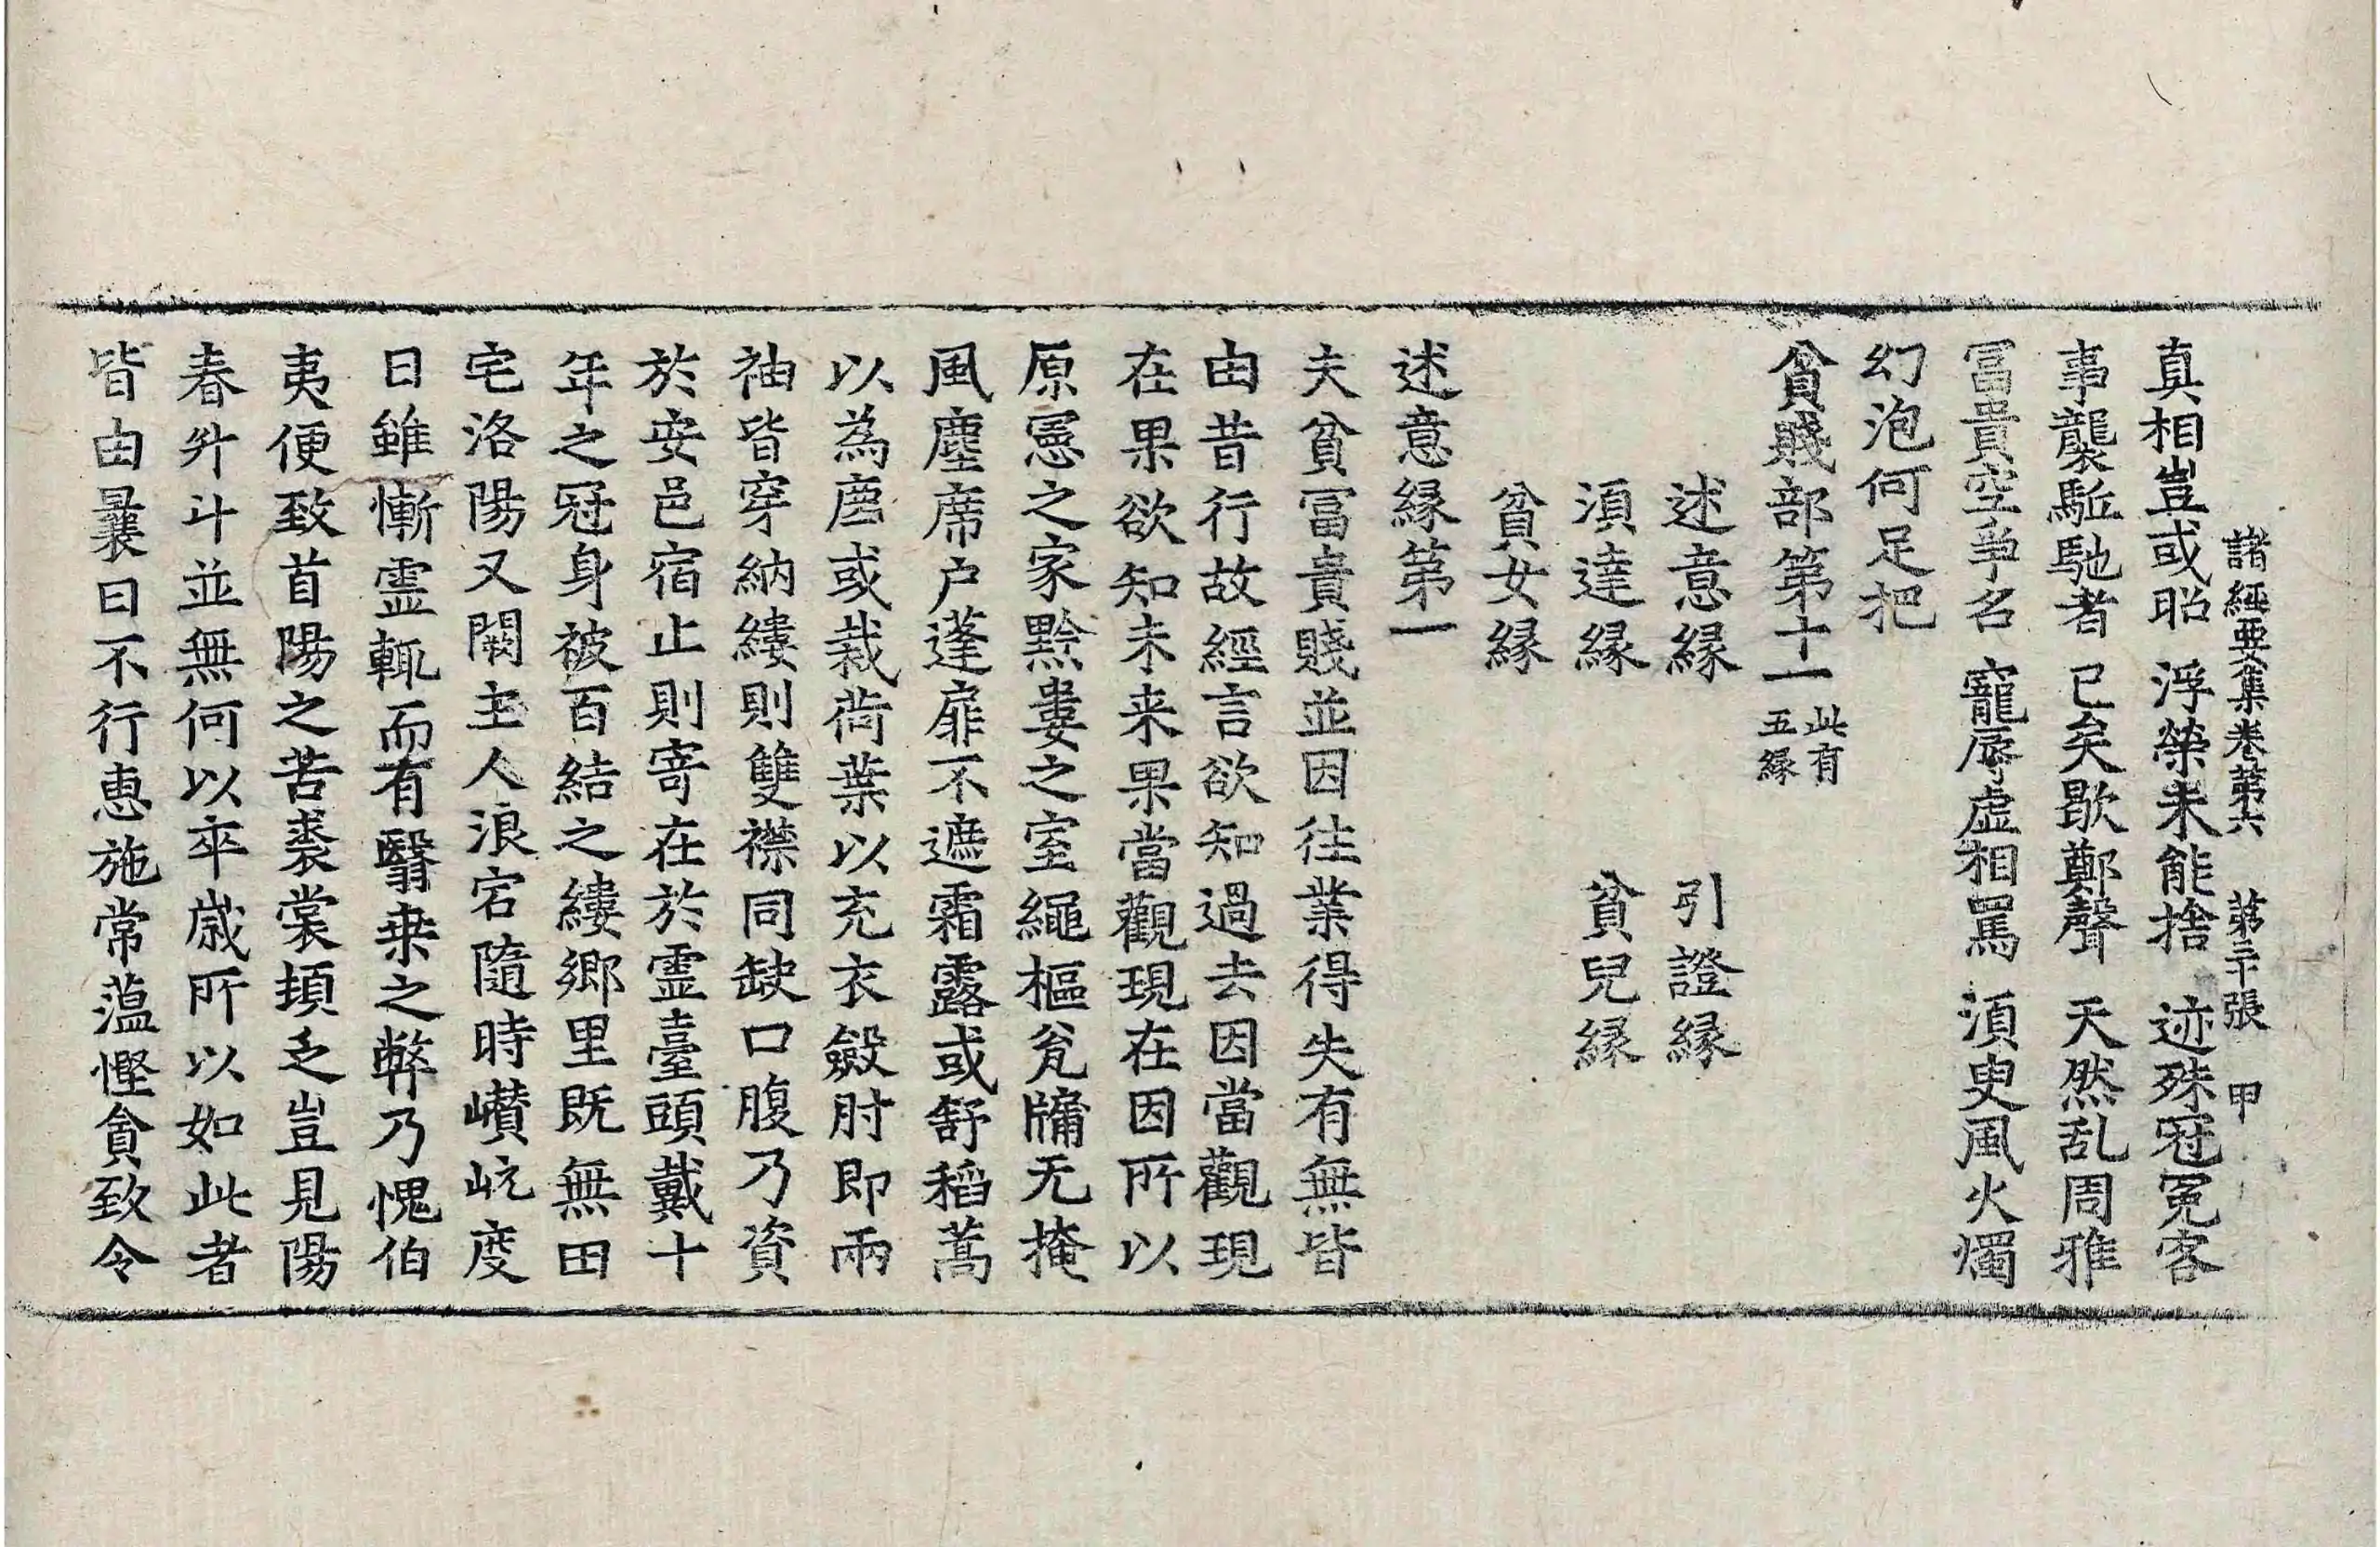 諸經要集卷第六　第二十張　甲
真相豈或昭　浮榮未能捨　迹殊冠冕客
事襲駈馳者　已矣歇鄭聲　天然乱周雅
冨貴空爭名　寵辱虛相罵　湏臾風火燭
幻泡何足把
貧賤部第十一此有五緣
述意緣　引證緣
湏達緣　貧兒緣
貧女緣
述意緣第一
夫貧冨貴賤並因往業得失有無皆
由昔行故經言欲知過去因當觀現
在果欲知未来果當觀現在因所以
原憲之家黔婁之室繩樞瓮牖无掩
風塵席户蓬扉不遮霜露或舒稻藁
以為廗或裁荷葉以充衣斂肘即兩
袖皆穿納縷則雙襟同缺口腹乃資
於安邑宿止則寄在於霊臺頭戴十
年之冠身被百結之縷鄉里既無田
宅洛陽又闕主人浪宕隨時巑岏度
日雖慚霊輒而有翳桒之弊乃愧伯
夷便致首陽之苦裘裳頓乏豈見陽
春升斗並無何以卒歲所以如此者
皆由曩日不行惠施常薀慳貪致令